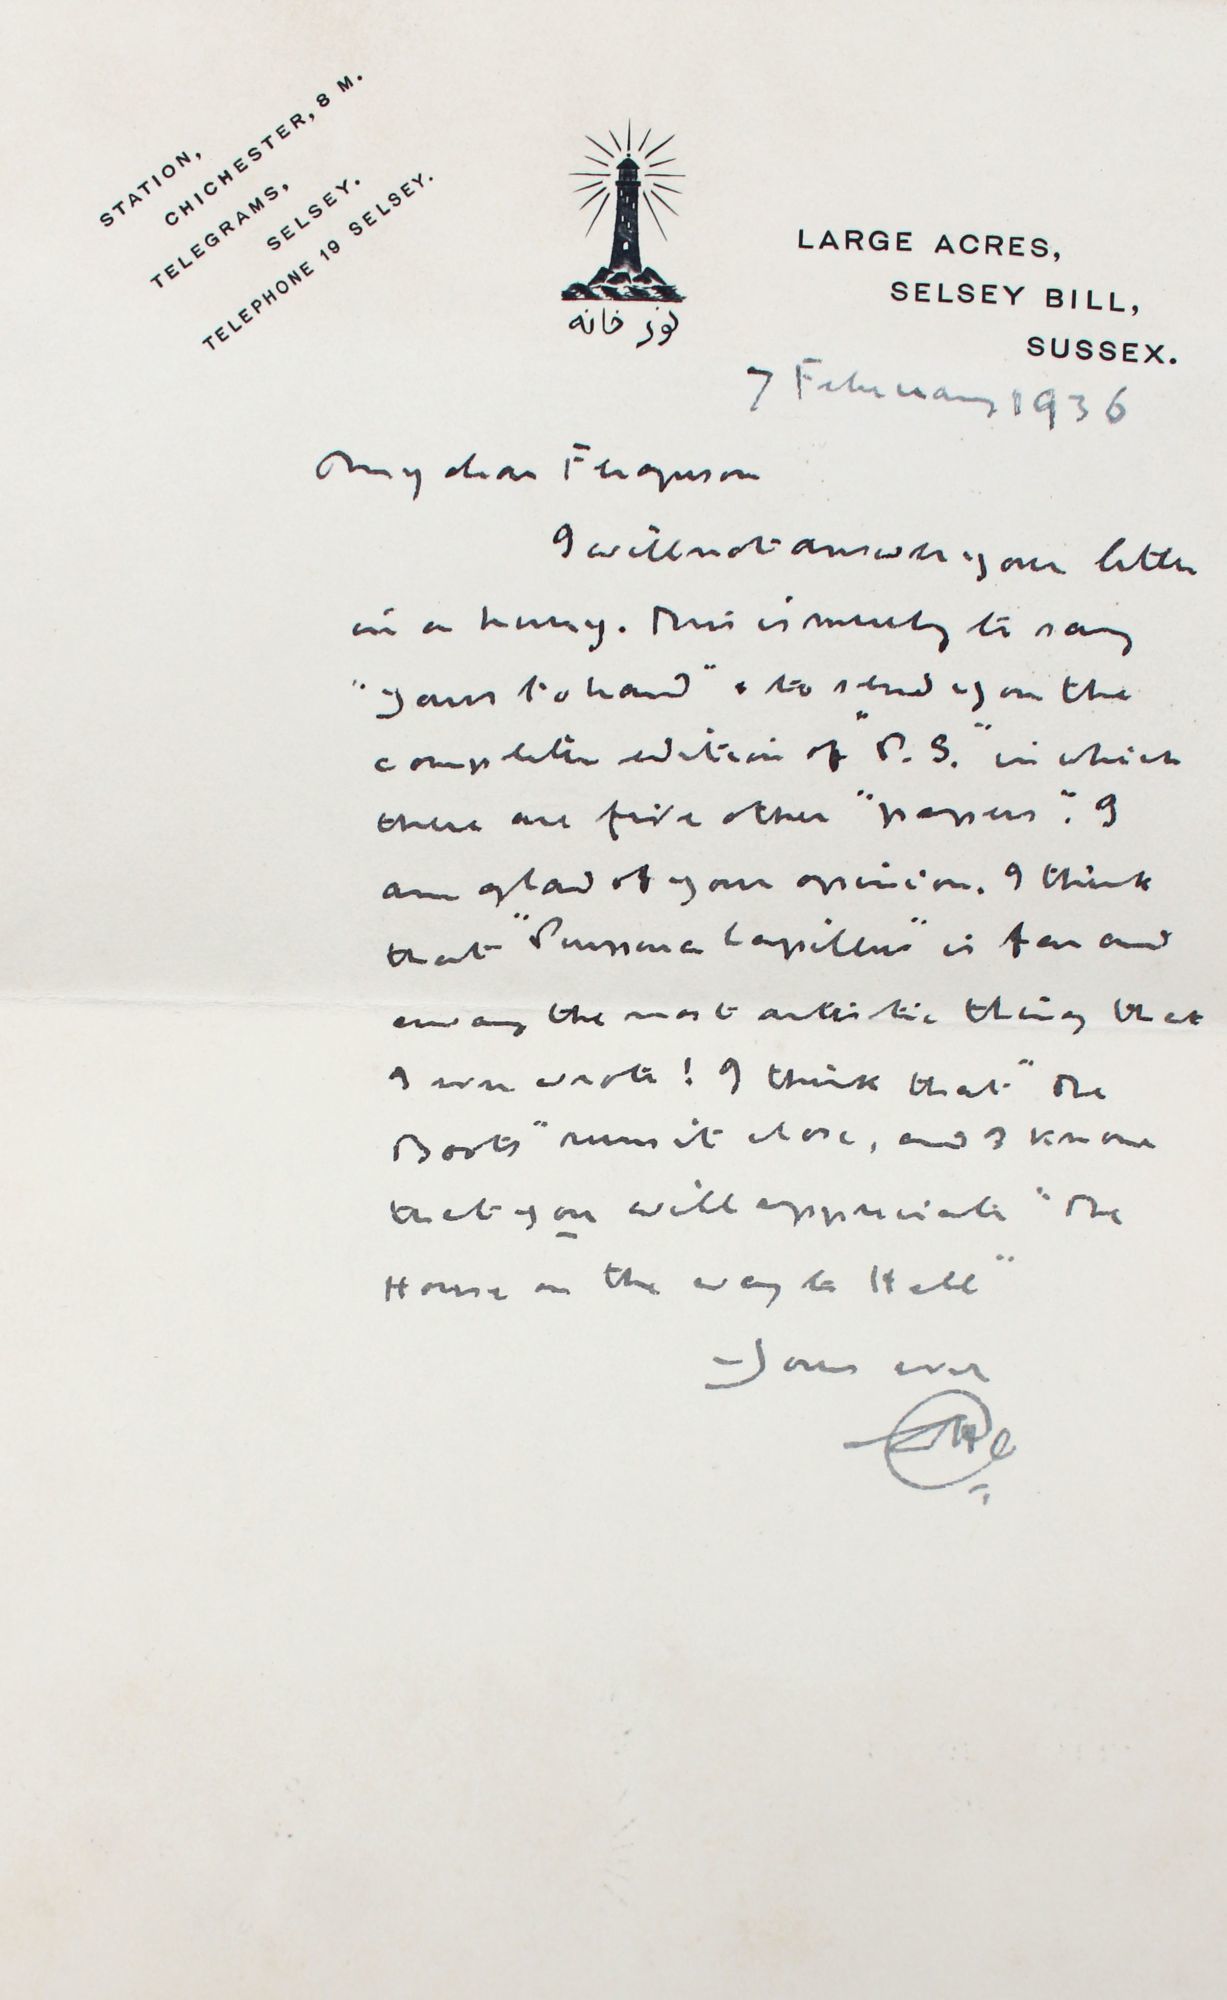 STATION,
CHICHESTER, 8 M.
TELEGRAMS,
SELSEY.
TELEPHONE 19 SELSEY.
نور خانه
LARGE ACRES,
SELSEY BILL,
SUSSEX.
7 February 1936
My dear Ferguson
I will not answer your letter
in a hurry. This is merely to say
"yours to hand" & to send you the
complete edition of "P. S." in which
there are five other "papers". I
am glad of your opinion. I think
that "Purpura Lapillus" is far and
away the most artistic thing that
I ever wrote! I think that "The
Boots" runs it close, and I know
that you will appreciate "The
House on the way to Hell"
Yours ever